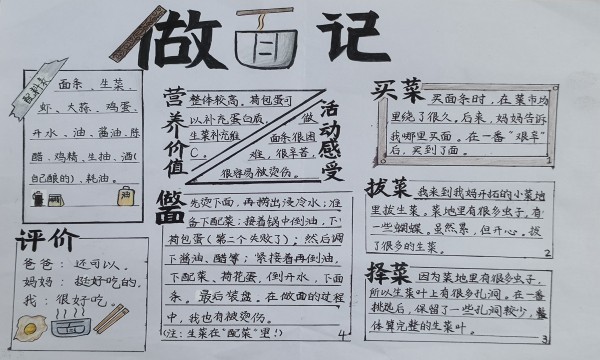 做面记
配料表
面条、生菜、
虾、大蒜、鸡蛋、
开水、油、酱油、陈
醋、鸡精、生抽、酒(
自己酿的)、耗油。
营养价值
整体较高。荷包蛋可
以补充蛋白质,
生菜补充维
C。
活动感受
做
面条很困
难,很辛苦,
很容易被烫伤。
买菜
买面条时,在菜市场
里绕了很久。后来,妈妈告诉
我哪里买面。在一番“艰辛”
后,买到了面。
1
拔菜
我来到我妈开拓的小菜地
里拔生菜。菜地里有很多虫子,有
一些蝴蝶。虽然累,但开心。拔
了很多的生菜。
2
择菜
因为菜地里有很多虫子,
所以生菜叶上有很多孔洞。在一番
挑选后,保留了一些孔洞较少,整
体算完整的生菜叶。
3
做面
先烫下面,再捞出浸冷水;准
备下配菜;接着锅中倒油,下
荷包蛋(第二个失败了);然后调
下酱油、醋等;紧接着再倒油,
下配菜、荷花蛋,倒开水,下面
条。最后装盘。在做面的过程
中,我也有被烫伤。
(注:生菜在“配菜”里!)
4
评价
爸爸:还可以。
妈妈:挺好吃的,
我:很好吃。